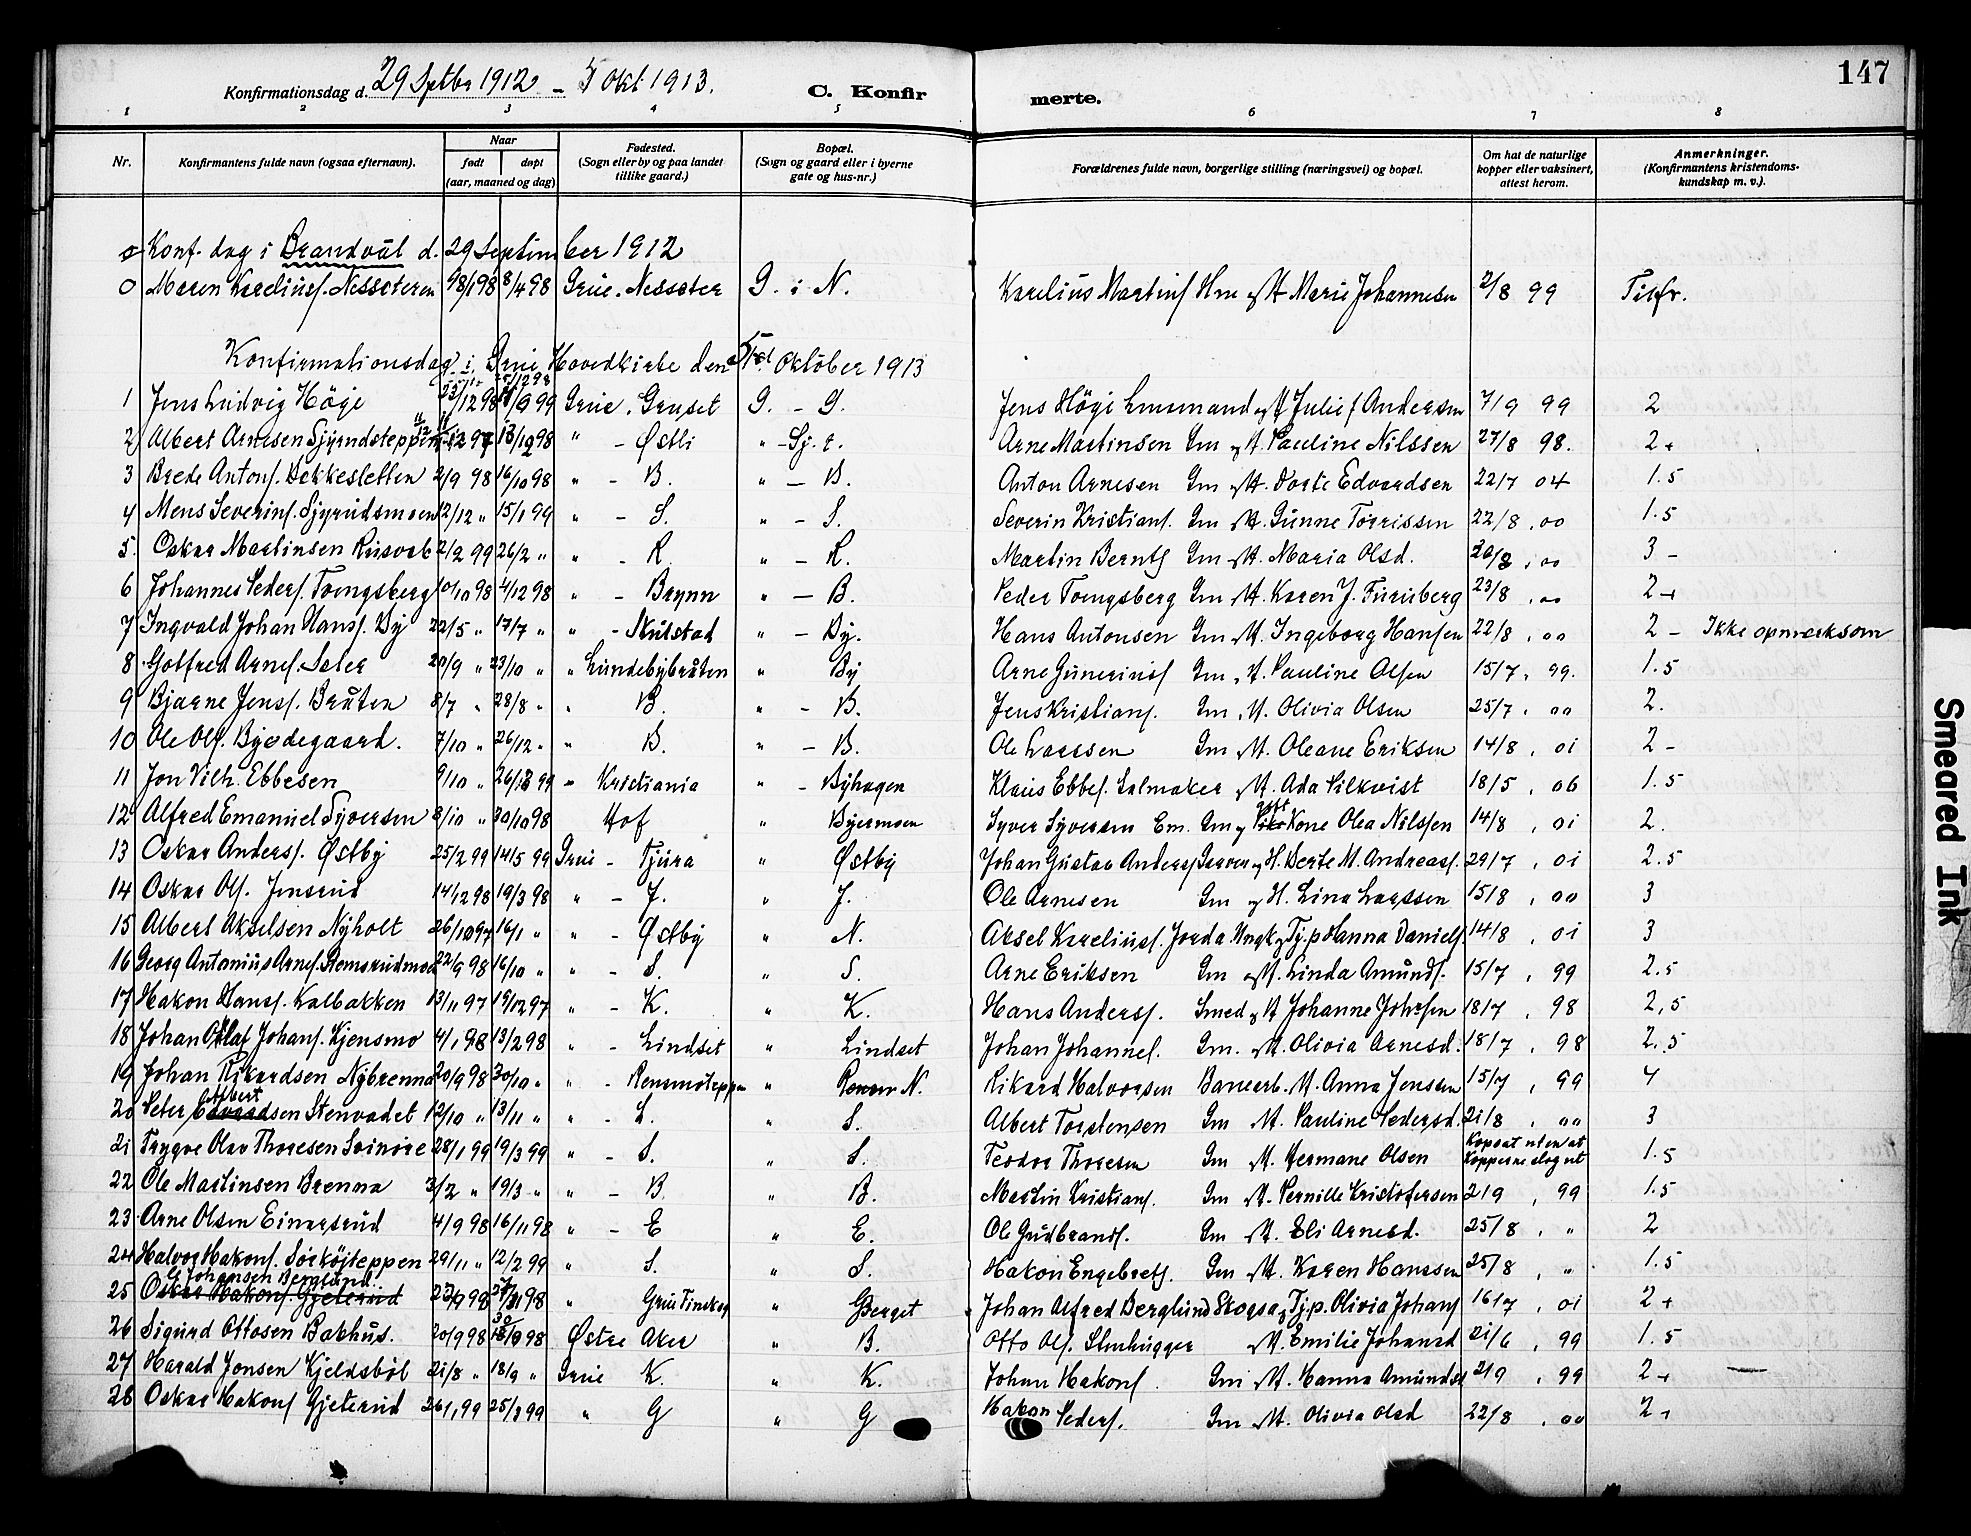 147
Konfirmationsdag d. 29 Septbr 1912 – 5 Okt 1913. C. Konfir merte.
1 2 3 4 5 6 7 8
Nr. Konfirmantens fulde navn (ogsaa efternavn). Naar født døpt (aar, maaned og dag) Fødested. (Sogn eller by og paa landet tillike gaard.) Bopæl. (Sogn og gaard eller i byerne gate og hus-nr.) Forældrenes fulde navn, borgerlige stilling (næringsvei) og bopæl. Om hat de naturlige kopper eller vaksinert, attest herom. Anmerkninger. (Konfirmantens kristendomskundskap m. v.).
Konf. dag i Brandvål d. 29 September 1912
0 Maren Kareliusf. Nessæteren 8/4 98 Grue. Nessæter G. i N. Karelius Martinsf Hm og H Marie Johannesen 2/8 99 Tilfr.
Konfirmationsdag i Grue Hovedkirke den 5 Oktober 1913
1 Jens Ludvig Høgi Grue. Gruset G. – G. Jens Høgi Lensmand og H Julie f Andersen 7/9 99 2
2 Albert Arnesen " – Østli " – Sj. t. Arne Martinsen Gm og H. Pauline Nilssen 27/8 98. 2+
3 Brede Antonf. Bekkesletten 2/9 98 16/10 98 " – B. " – B. Anton Arnesen Gm og H. Dorte Edvardsen 22/7 04 1.5
4 Mens Severinf. Sjyrudsmoen 12/12 " 15/1 99 " – S. " – S. Severin Kristianf. Gm og H. Gunne Torrissen 22/8 . 00 1.5
5. Oskar Martinsen Rusvek 2/2 99 26/2 " " – R. " – R. Martin Berntf Gm og H. Maria Olsd. . 00 3 –
6 Johannes Pedersf. Tvengsberg 10/10 98 4/12 98 " – Brynn " – B. Peder Tvengsberg Gm og H. Karen J. Furuberg 23/8 . 00 2+
7 Ingvald Johan Hansf. By 22/5 " 17/7 " " – Nulstad " – By. Hans Antonsen Gm og H. Ingeborg Hansen 22/8 . 00 2 – Ikke opmerksom
8 Gotfred Arnef. Seter 20/9 " 23/10 " " Lundebybråten " By Arne Guneriusf Gm . H. Pauline Olsen 15/7 . 99. 1.5
9 Bjarne Jensf. Bråten 8/7 " 28/8 " " B. " – B. Jens Kristianf. Gm . H. Olivia Olsen 25/7 . 00 2.
10 Ole Olf. Byødegaard. 7/10 " 26/12 " " B. " – B. Ole Larssen Gm og H. Oleane Eriksen 14/8 . 01 2 –
11 Jon Vilh. Ebbesen 9/10 " Kristiania " – Byhagen Klaus Ebbef. Salmaker og H. Ada Silkvist 18/5 . 06 1.5
12 Alfred Emanuel Syversen 8/10 " 30/10 98 Hof " Byermoen Syver Syversen Em. Gm og Kone Olea Nilssen 14/8 . 01 2.
13 Oskar Andersf. Østby 25/2 99 14/5 99 Grue – Tjura " Østby Johan Gustav Andersf Garver og H. Berte M. Andreasf. 29/7 . 01 2.5
14 Oskar Olf. Jensrud 14/12 98 19/3 98 " – J. " J. Ole Arnesen Gm og H. Lina Larssen 15/8 . 00 3
15 Albert Akselsen Nyholt 26/10 97 16/1 " " – Østby " N. Aksel Kareliusf. Jorda. Ungk. og Tj.p Hanna Danielf. 14/8 . 01 3
16 Georg Antonius Arnef. Stemsrudmoen 22/9 98 16/10 " " – S. " S. Arne Eriksen Gm og H. Linda Amundf. 15/7 . 99 2.5
17 Hakon Hansf. Kalbakken 13/11 97 19/12 97 " – K. " K. Hans Andersf. Smed og H Johanne Johnsen 18/7 . 98 2,5
18 Johan Olaf Johanf. Kjensmo 4/1 98 13/2 98 " – Lindset " Lindset Johan Johannef. Gm. og H. Olivia Arnesd. 18/7 . 98 2.5
19 Johan Rikardsen Nybrenna 20/9 98 30/10 " " – Rensmoteppen " N. Rikard Halvorsen Banearb. H. Anna Jenssen 15/7 . 99 4
20 Peter Albert Edvardsen Stenvadet 12/10 " 13/11 " " – S. " S. Albert Torstensen Gm H. Pauline Pedersd. 21/8 . 00 3
21 Trygve Olav Thoresen Svinore 28/1 99 19/3 99 " – S. " S. Teodor Thoresen Gm og H. Hermane Olsen Kopsat uten at Kopperne slog ut 1.5
22 Ole Martinsen Brenna 3/2 " 19/3 " " – B. " B. Martin Kristianf. Gm og H. Pernille Kristofersen 2/9 . 99 1.5
23 Arne Olsen Einarsrud 4/9 98 16/11 98 " – E " E. Ole Gudbrandf. Gm og H. Eli Arnesd. 25/8 . " 2
24 Halvor Hakonf. Sorkojteppen 29/11 " 12/2 99 " S. " S. Hakon Engebretf. Gm og H. Karen Hanssen 25/8 . " 1.5
25 G Johansen Berglund. Oskar Hakonf Gjeterud " Grue Finskog " Berget Johan Alfred Berglund Skogsa. og Tj.p. Olivia Johanf 16/7 . 01 2+
26 Sigurd Ottosen Bakhus. 20/9 98 Østre Aker " B. Otto Olf. Stenhugger og H. Emilie Johansd 21/6 . 99 1.5
27 Harald Jonsen Kjeldsbøl 21/8 " 18/9 " Grue K. " K. Johan Hakonf. Gm og H. Hanna Amundsd 2/9 . 99 2+ —
28 Oskar Hakonf Gjeterud 26/1 99 25/3 99 " G " G Hakon Pedersf. Gm og H. Olivia Olsd 22/8 . 00 2+
Smeared Ink